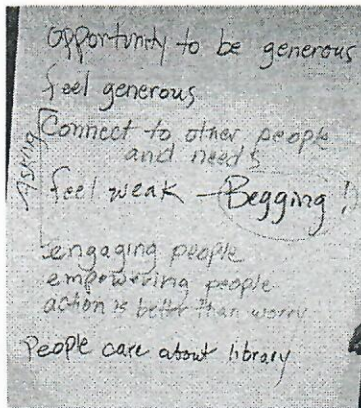 Opportunity to be generous
feel generous
Asking
Connect to other people
and needs
feel weak - Begging!
engaging people
empowering people
action is better than worry
People care about library